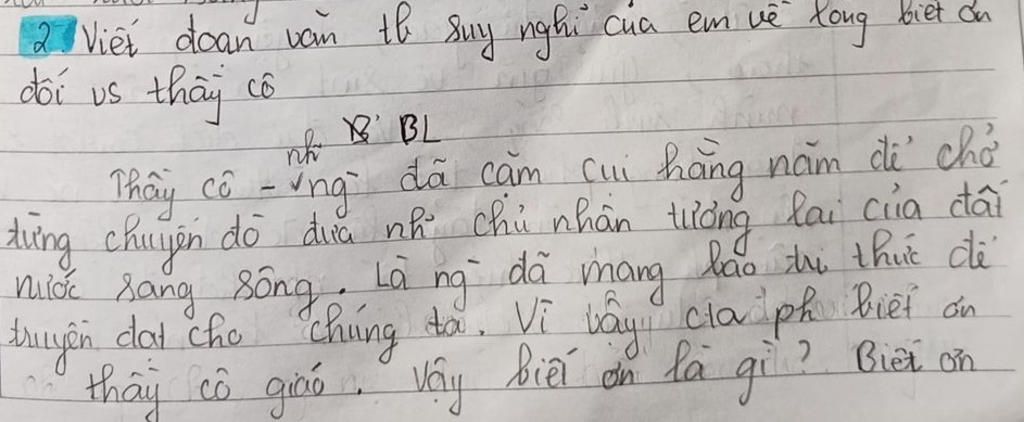 2. Viết đoạn văn th suy nghĩ của em về lòng biết ơn
đối vs thầy cô
BL
Thầy cô - nh~ ng` đã cằm cụi hằng năm để chở
từng chuyến đò đưa nh~ chủ nhân tương lai của đất
nước sang sông. Là ng` đã mang bao tri thức để
truyền đạt cho chúng ta. Vì vậy, cta ph biết ơn
thầy cô giáo. Vậy biết ơn là gì? Biết ơn